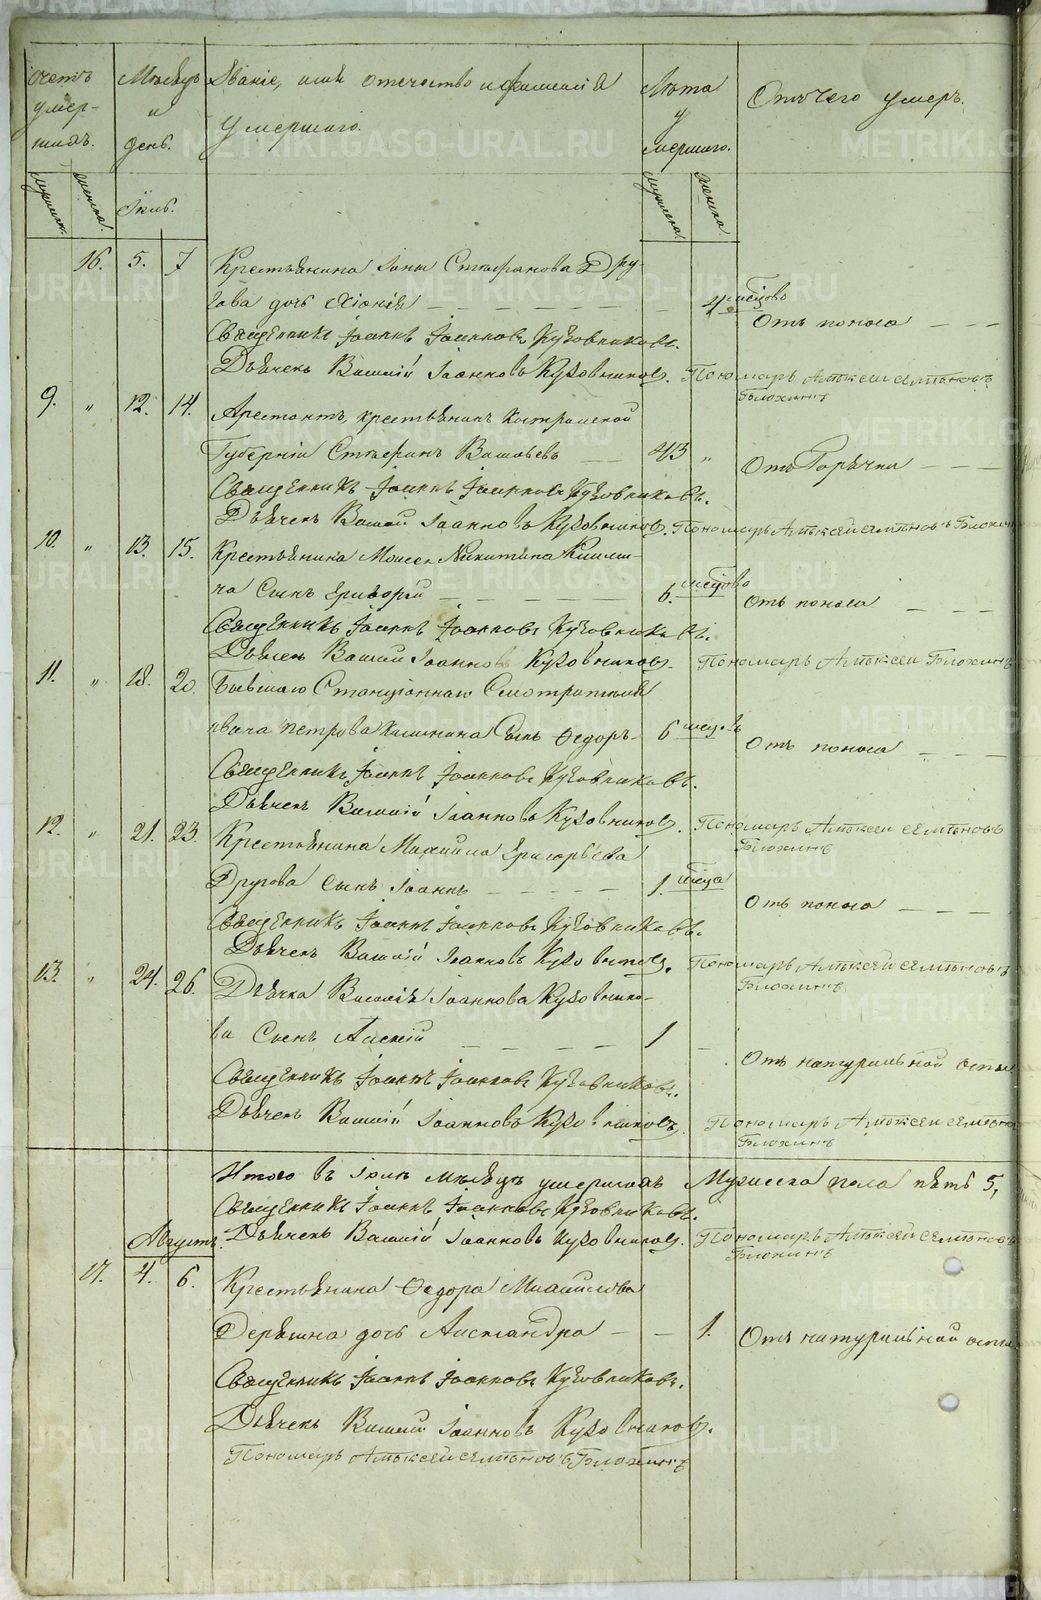 Счетъ умер-шихъ. Мѣсяцъ и день. Званіе, имя отечество и фамилія умершаго. Лѣта умершаго. Отъ чего умеръ.
Мужеска. Женска. Іюль. Мужеска. Женска.
16. 5. 7 Крестьянина Іоны Стефанова Дру-
гова дочь Хіонія 4 месяцовъ Отъ поноса
Священникъ Іоаннъ Іоанновъ Кузовниковъ.
Дьячекъ Василій Іоанновъ Кузовниковъ. Пономарь Алексей Семеновъ Блохинъ
9. " 12. 14. Арестантъ, крестьянинъ Костромской
Губерніи Стефанъ Васильевъ 43 " Отъ Горячки
Священникъ Іоаннъ Іоанновъ Кузовниковъ.
Дьячекъ Василій Іоанновъ Кузовниковъ. Пономарь Алексей Семеновъ Блохинъ
10. " 13. 15. Крестьянина Моисея Никитина
на Сынъ Григорій 6. месяцовъ Отъ поноса
Священникъ Іоаннъ Іоанновъ Кузовниковъ.
Дьячекъ Василій Іоанновъ Кузовниковъ. Пономарь Алексей Блохинъ
11. " 18. 20. Бывшаго Станціоннаго Смотрителя
Ивана Петрова Калинина Сынъ Федоръ 6 месяцовъ Отъ поноса
Священникъ Іоаннъ Іоанновъ Кузовниковъ.
Дьячекъ Василій Іоанновъ Кузовниковъ. Пономарь Алексей Семеновъ Блохинъ
12. " 21. 23. Крестьянина Михаила Григорьева
Другова Сынъ Іоаннъ 1. месяца Отъ поноса
Священникъ Іоаннъ Іоанновъ Кузовниковъ.
Дьячекъ Василій Іоанновъ Кузовниковъ. Пономарь Алексей Семеновъ Блохинъ
13. " 24. 26. Дьячка Василія Іоаннова Кузовнико-
ва Сынъ Алексій 1 Отъ натуральной оспы
Священникъ Іоаннъ Іоанновъ Кузовниковъ.
Дьячекъ Василій Іоанновъ Кузовниковъ. Пономарь Алексей Семеновъ Блохинъ
Итого въ Іюлѣ мѣсяцѣ умершихъ Мужеска пола пять 5,
Священникъ Іоаннъ Іоанновъ Кузовниковъ.
Августъ. Дьячекъ Василій Іоанновъ Кузовниковъ. Пономарь Алексей Семеновъ Блохинъ
17. 4. 6. Крестьянина Федора Михайлова
дочь Александра 1. Отъ натуральной оспы
Священникъ Іоаннъ Іоанновъ Кузовниковъ.
Дьячекъ Василій Іоанновъ Кузовниковъ.
Пономарь Алексей Семеновъ Блохинъ
METRIKI.GASO-URAL.RU